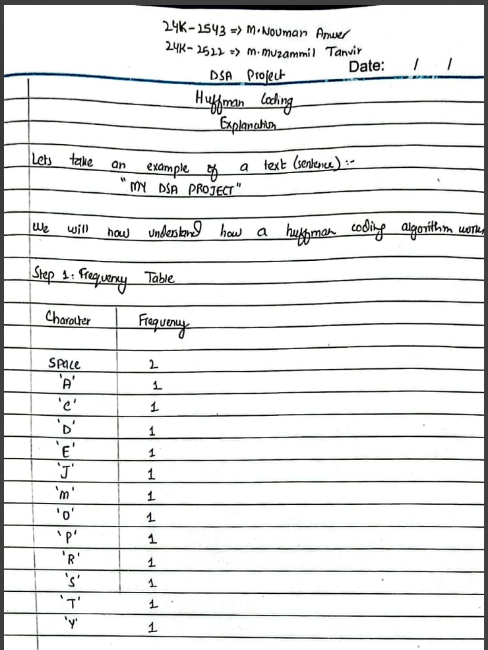 24K-2543 => M.Nouman Anwer
24K-2522 => M.Muzammil Tanvir
DSA Project
Date: / /
Huffman Coding
Explanation
Lets take an example of a text (sentence) :-
"MY DSA PROJECT"
We will now understand how a huffman coding algorithm works
Step 1: Frequency Table
Character Frequency
SPACE 2
'A' 1
'C' 1
'D' 1
'E' 1
'J' 1
'M' 1
'O' 1
'P' 1
'R' 1
'S' 1
'T' 1
'Y' 1